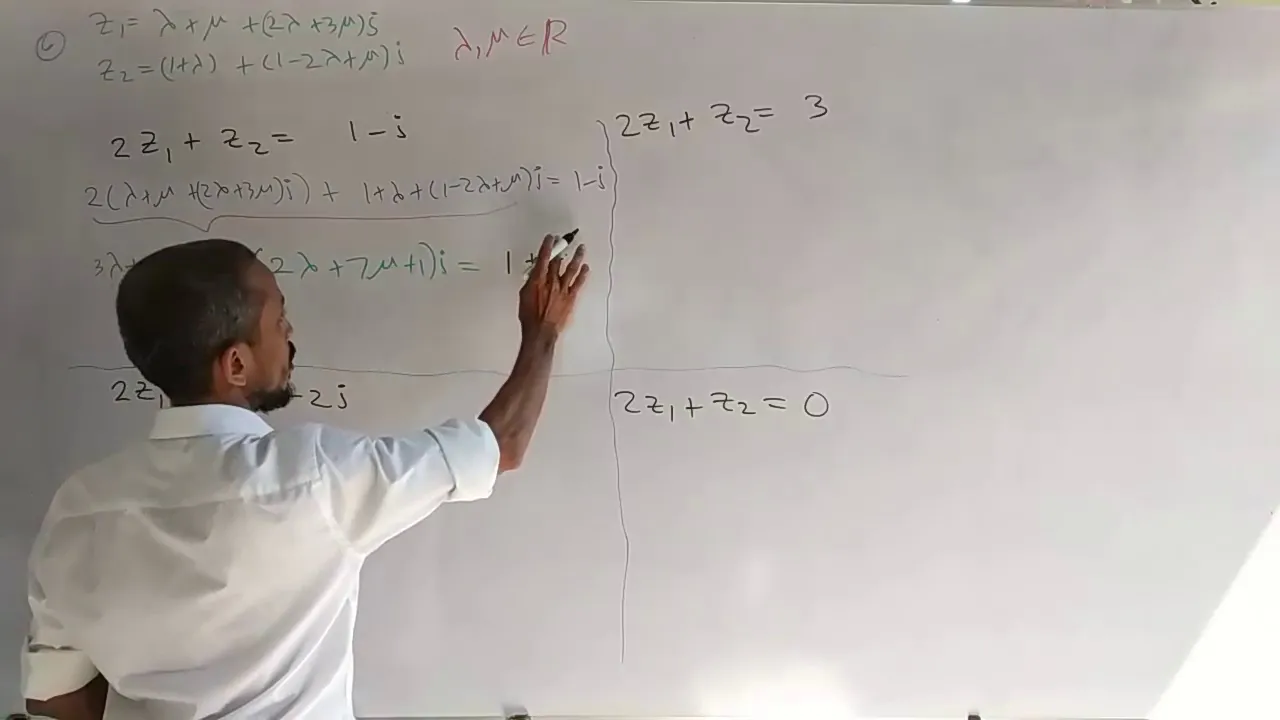 6
z₁= λ+μ +(2λ+3μ)i
z₂=(1+λ) +(1-2λ+μ)i
λ,μ∈ℝ
2z₁+ z₂= 1-i
2(λ+μ +(2λ+3μ)i) + 1+λ+(1-2λ+μ)i= 1-i
3λ+ (2λ+7μ+1)i = 1+
2z₁ -2i
2z₁+ z₂= 3
2z₁+ z₂ = 0